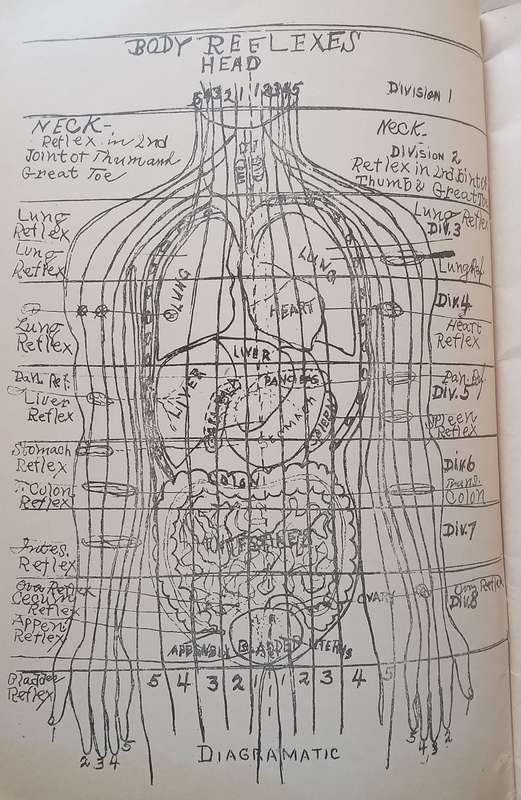 BODY REFLEXES
HEAD
5 4 3 2 1 1 2 3 4 5
DIVISION 1
NECK-
Reflex in 2nd
Joint of Thum and
Great Toe
Neck-
DIVISION 2
Reflex in 2nd Joint of
Thumb & Great Toe
Lung
Reflex
Lung
Reflex
Lung Reflex
Div. 3
Lung Ref.
LUNG
LUNG
HEART
Lung
Reflex
Div. 4
Heart
Reflex
LIVER
LIVER
PANCREAS
STOMACH
SPLEEN
Pan. Ref.
Liver
Reflex
Pan. Ref.
Div. 5
Spleen
Reflex
Stomach
Reflex
Colon
Reflex
COLON
Div. 6
Trans.
Colon
INTESTINES
Div. 7
Intes.
Reflex
Ova Reflex
Cecum
Reflex
Appen
Reflex
OVARY
Reflex
Div. 8
APPENDIX BLADDER UTERUS
Bladder
Reflex
5 4 3 2 1 1 2 3 4 5
2 3 4 5
5 4 3 2
DIAGRAMATIC